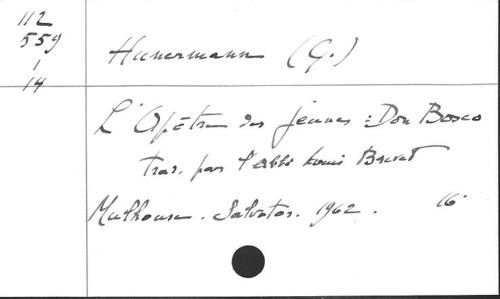 112
559
1
14
Hunermann (G.)
L'Apôtre des jeunes : Don Bosco
trad. par l'abbé Louis Brevet
Mulhouse. Salvator. 1962. 16°